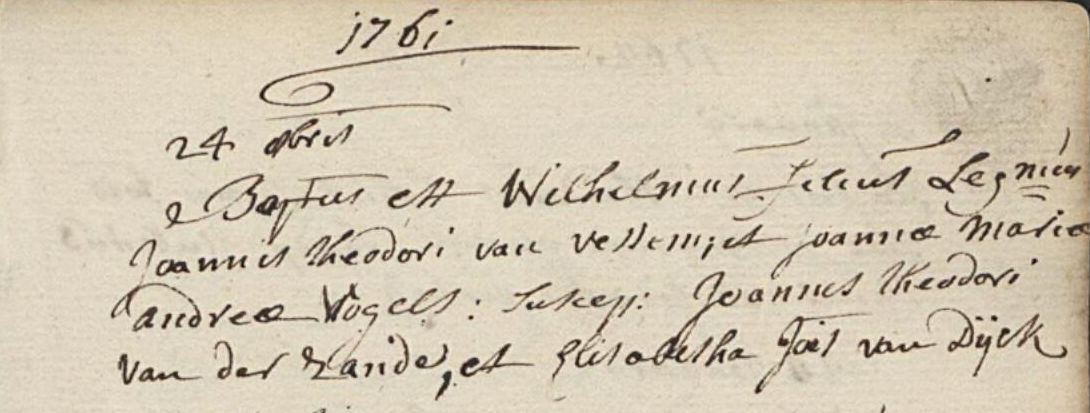 1761
24 xbris
Baptus est Wilhelmus filius Legmus
Joannis theodori van vessem, et joannæ mariæ
andreæ Vogels: suscep: Joannes theodori
van der zande, et Elisabetha Jois van Dijck